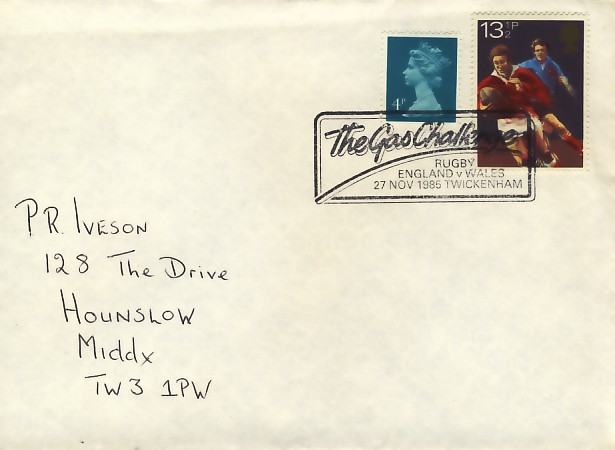 13½P
4P
The Gas Challenge
RUGBY
ENGLAND v WALES
27 NOV 1985 TWICKENHAM
P.R. IVESON
128 The Drive
HOUNSLOW
Middx
TW3 1PW